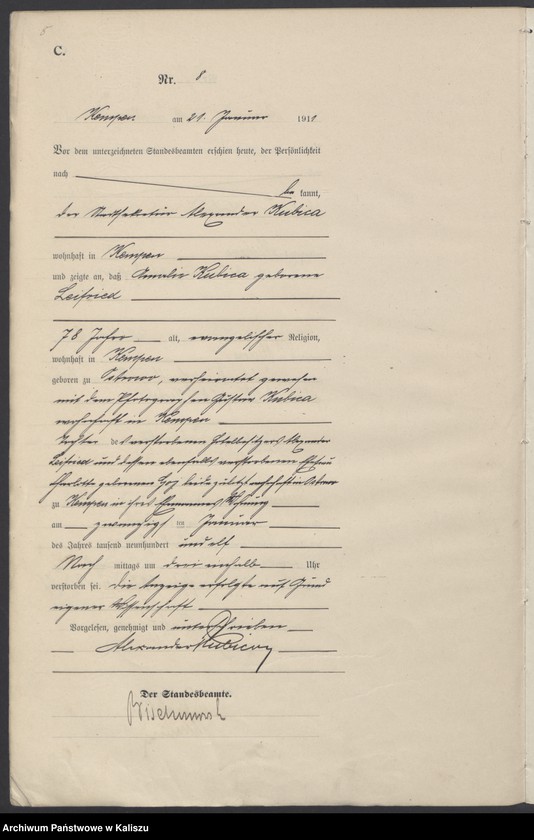 C.
Nr. 8
Kempen am 21. Januar 1911
Vor dem unterzeichneten Standesbeamten erschien heute, der Persönlichkeit
nach
be kannt,
der Alexander Kubica
wohnhaft in Kempen
und zeigte an, daß Amalie Kubica geborene
Leifried
78 Jahre alt, evangelischer Religion,
wohnhaft in Kempen
geboren zu verheiratet gewesen
mit dem Photographen Gustav Kubica
wohnhaft in Kempen
Tochter des verstorbenen Alexander
Leifried und dessen ebenfalls verstorbenen Ehefrau
Charlotte geborenen beide zuletzt wohnhaft in
zu Kempen in ihres Ehemannes Wohnung
am zwanzigsten Januar
des Jahres tausend neunhundert und elf
Nach mittags um drei einhalb Uhr
verstorben sei. Die Anzeige erfolgte auf Grund
eigener Wissenschaft
Vorgelesen, genehmigt und unterschrieben
Alexander Kubica
Der Standesbeamte.
Archiwum Państwowe w Kaliszu